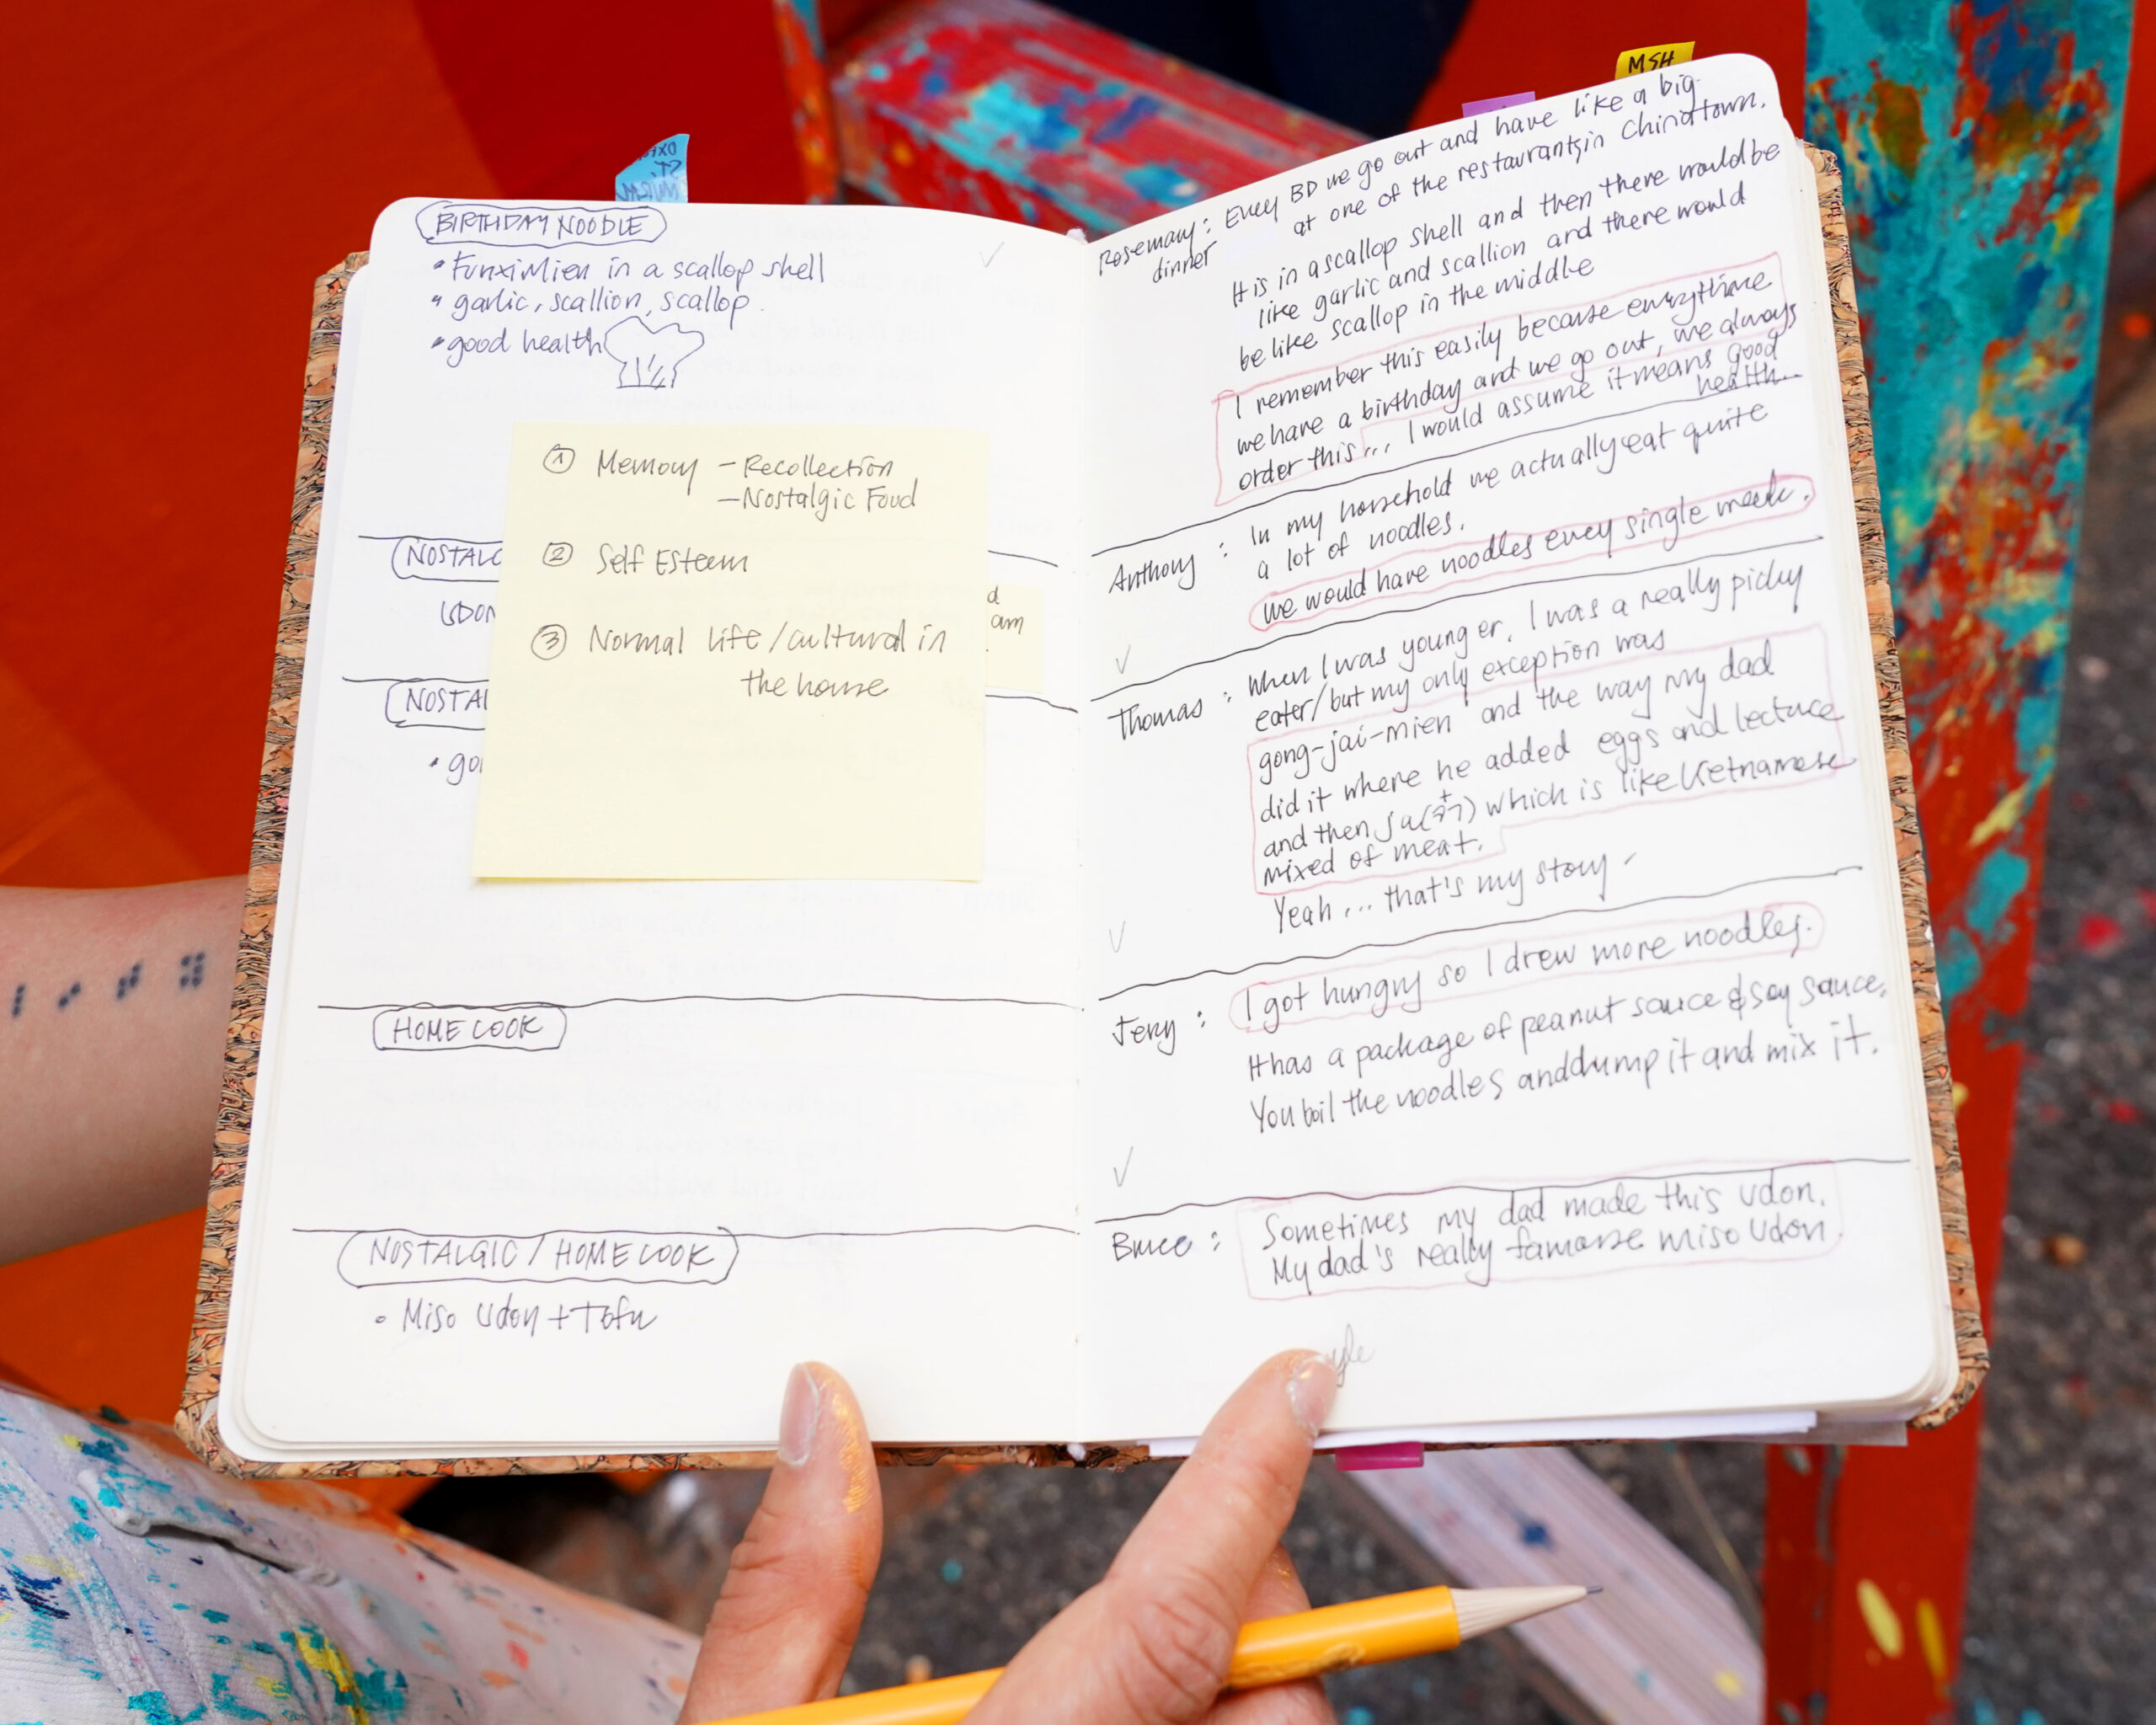 MSH
BIRTHDAY NOODLE
• Funximien in a scallop shell
• garlic, scallion, scallop.
• good health
① Memory - Recollection
- Nostalgic Food
② Self Esteem
③ Normal life / cultural in
the house
d
am
HOME COOK
NOSTALGIC / HOME COOK
• Miso Udon + Tofu
Rosemary: Every BD we go out and have like a big
dinner at one of the restaurants in Chinattown.
It is in a scallop shell and then there would be
like garlic and scallion and there would
be like scallop in the middle
I remember this easily because everytime
we have a birthday and we go out, we always
order this... I would assume it means good
health...
Anthony: In my household we actually eat quite
a lot of noodles.
We would have noodles every single week.
Thomas: When I was younger, I was a really picky
eater/but my only exception was
gong-jai-mien and the way my dad
did it where he added eggs and lectuce
and then which is like Vietnamese
mixed of meat.
Yeah... that's my story -
Jeny: I got hungry so I drew more noodles.
It has a package of peanut sauce & soy sauce.
You boil the noodles and dump it and mix it.
Bruce: Sometimes my dad made this udon.
My dad's really famouse miso udon.